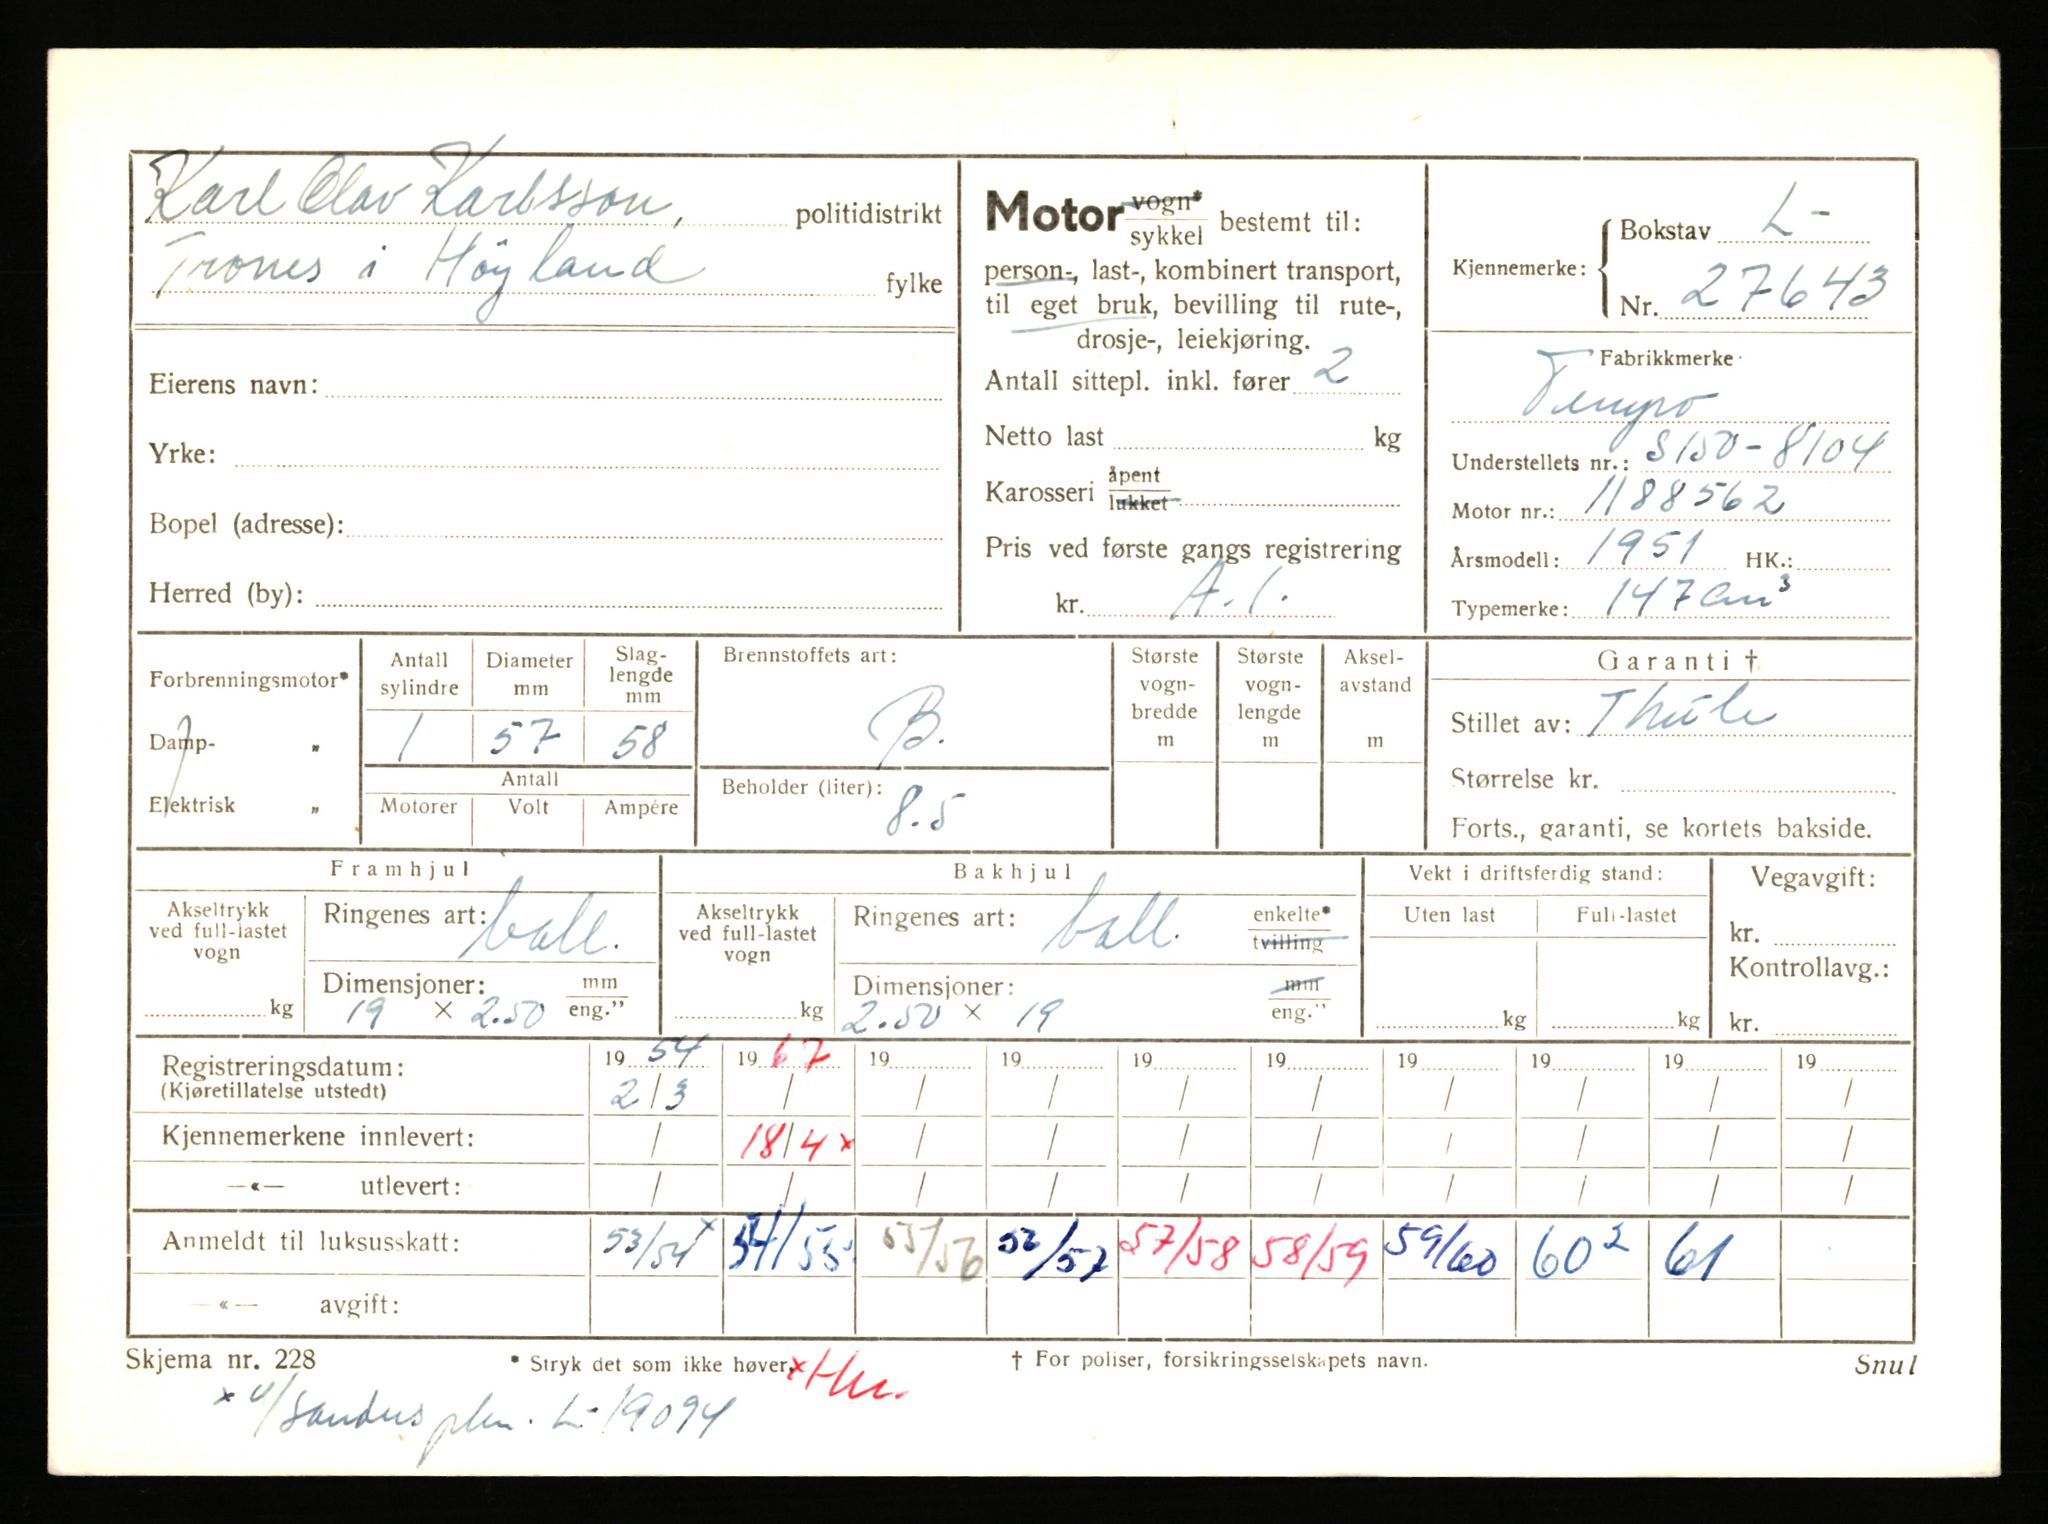 Karl Olav Karlsson, politidistrikt
Trones i Høyland fylke
Eierens navn:
Yrke:
Bopel (adresse):
Herred (by):
Motor vogn* sykkel bestemt til:
person-, last-, kombinert transport,
til eget bruk, bevilling til rute-,
drosje-, leiekjøring.
Antall sittepl. inkl. fører 2
Netto last kg
Karosseri åpent lukket
Pris ved første gangs registrering
kr. A.1.
Kjennemerke: Bokstav L-
Nr. 27643
Fabrikkmerke
Tempo
Understellets nr.: S150-8104
Motor nr.: 1188562
Årsmodell: 1951 HK.:
Typemerke: 147 cm³
Forbrenningsmotor*
Damp- „
Elektrisk „
Antall sylindre Diameter mm Slag-lengde mm
1 57 58
Antall
Motorer Volt Ampére
Brennstoffets art:
B.
Beholder (liter):
8.5
Største vogn-bredde m
Største vogn-lengde m
Aksel-avstand m
Garanti †
Stillet av: Thule
Størrelse kr.
Forts., garanti, se kortets bakside.
Framhjul
Akseltrykk ved full-lastet vogn
kg
Ringenes art: ball.
Dimensjoner: mm eng."
19 × 2.50
Bakhjul
Akseltrykk ved full-lastet vogn
kg
Ringenes art: ball. enkelte* tvilling
Dimensjoner: mm eng."
2.50 × 19
Vekt i driftsferdig stand:
Uten last Full-lastet
kg kg
Vegavgift:
kr.
Kontrollavg.:
kr.
Registreringsdatum: 19 54 19 67 19 19 19 19 19 19 19 19
(Kjøretillatelse utstedt) 2/3 / / / / / / / / /
Kjennemerkene innlevert: / 18/4 × / / / / / / / /
—«— utlevert: / / / / / / / / / /
Anmeldt til luksusskatt: 53/54 × 54/55 55/56 56/57 57/58 58/59 59/60 60² 61
—«— avgift:
Skjema nr. 228 * Stryk det som ikke høver. † For poliser, forsikringsselskapets navn. Snul
× L-19094